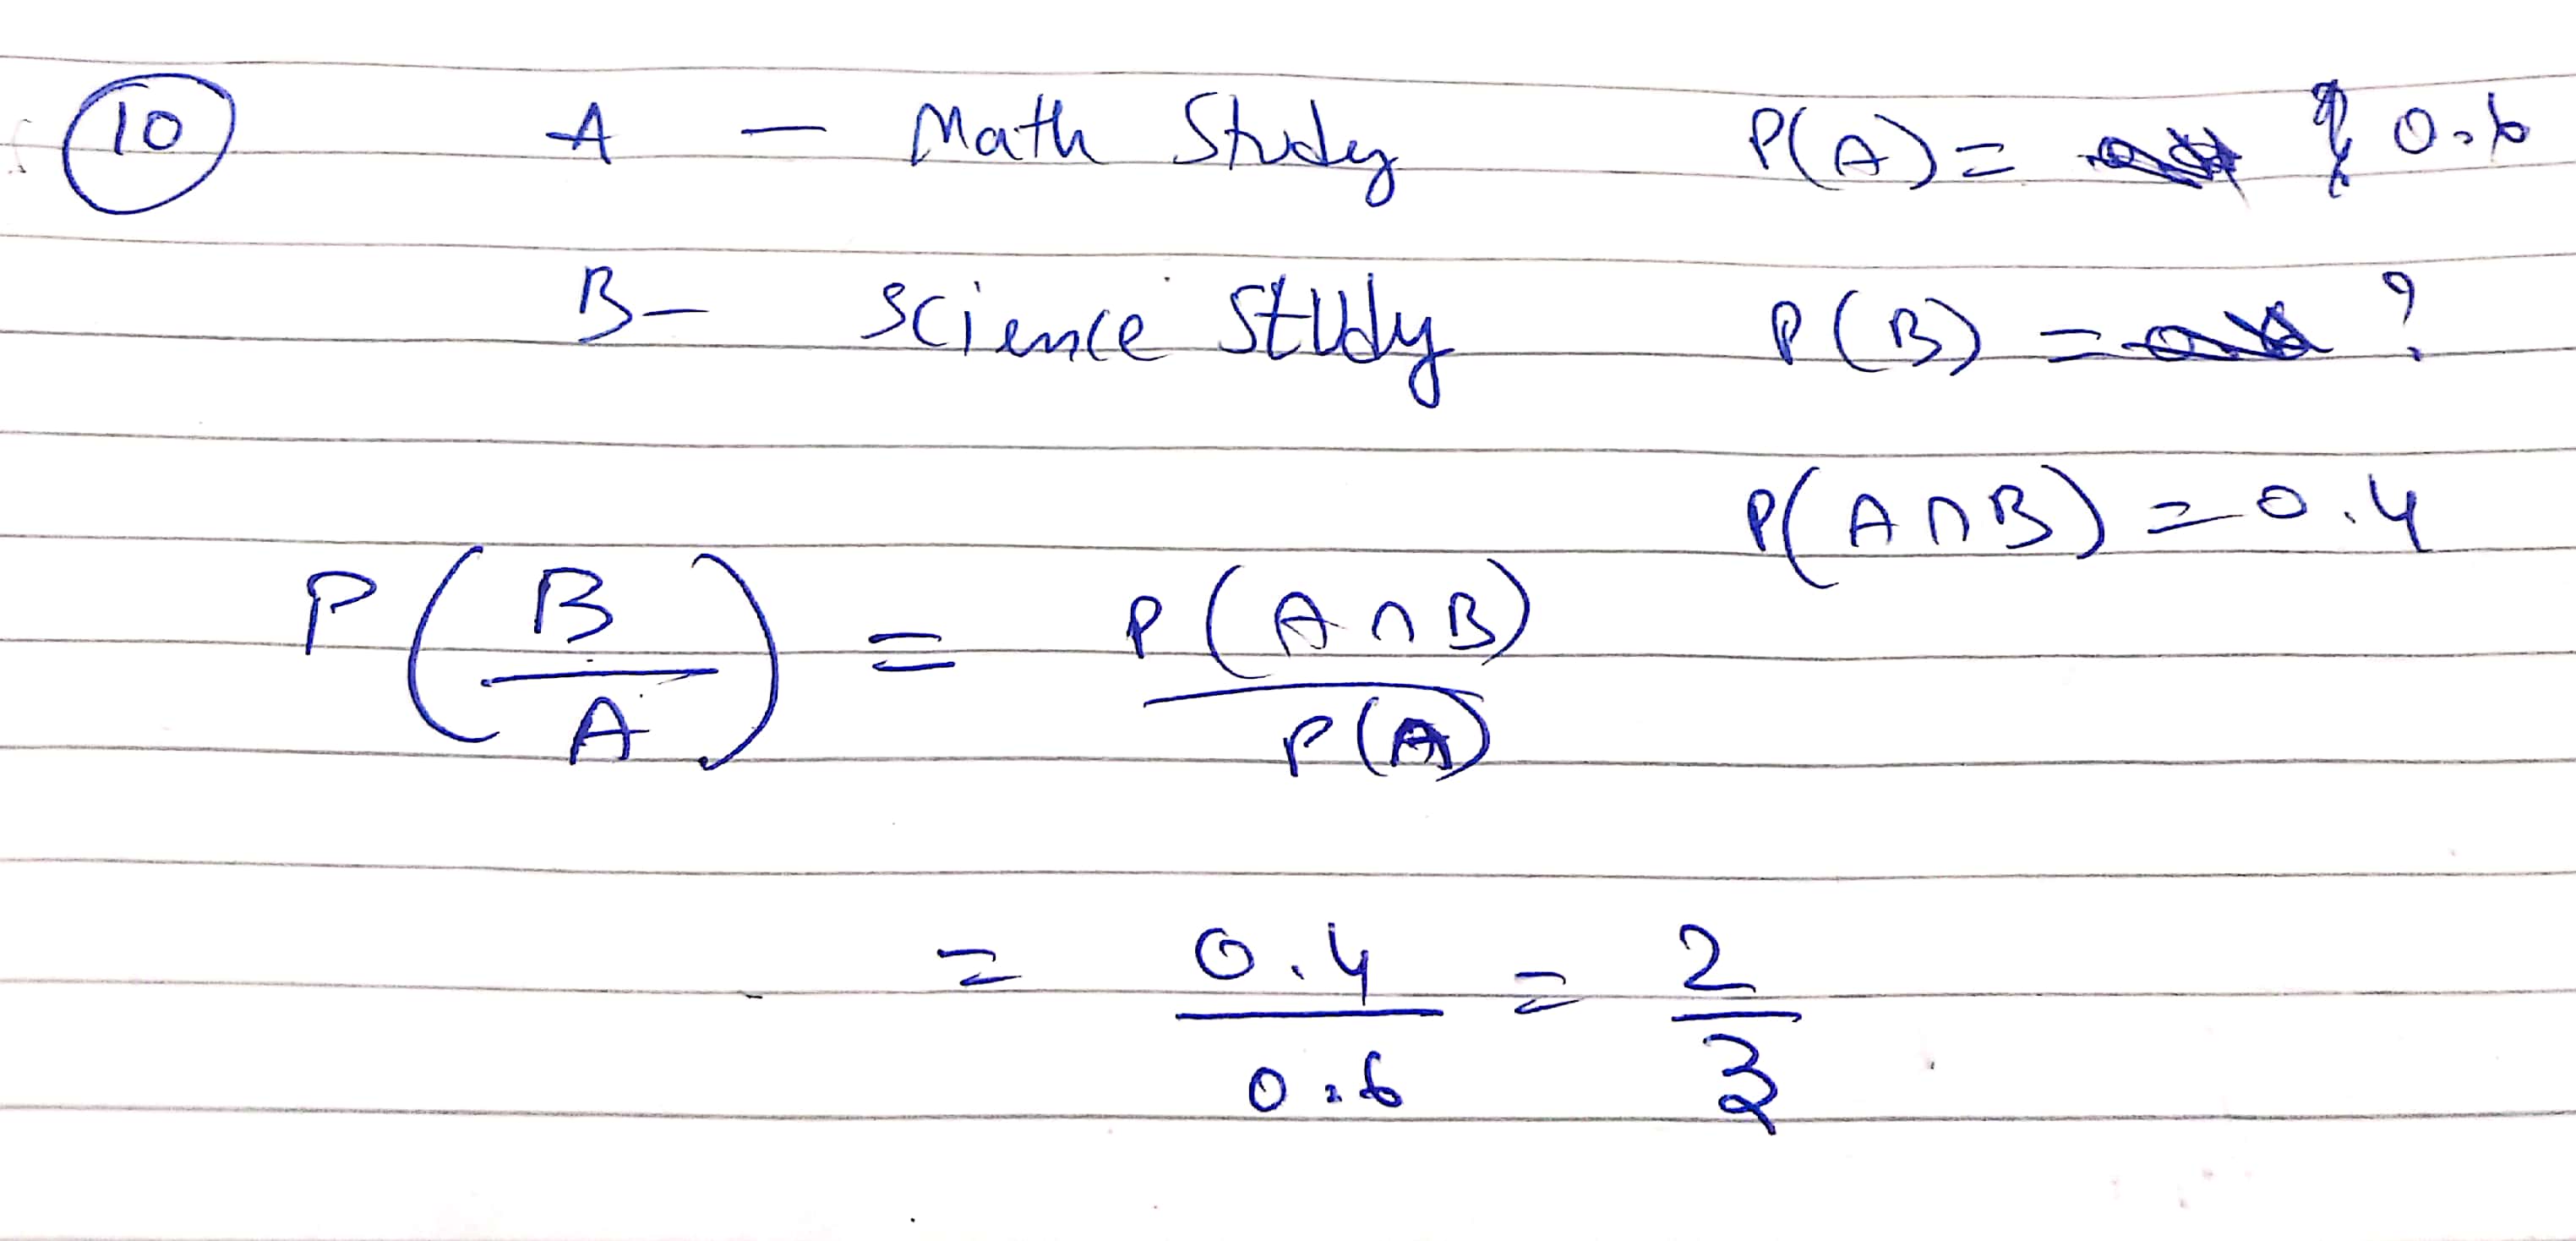 10 A — Math Study P(A) = 0.6
B — Science Study P(B) = ?
P(A∩B) = 0.4
P(B/A) = P(A∩B)/P(A)
= 0.4/0.6 = 2/3